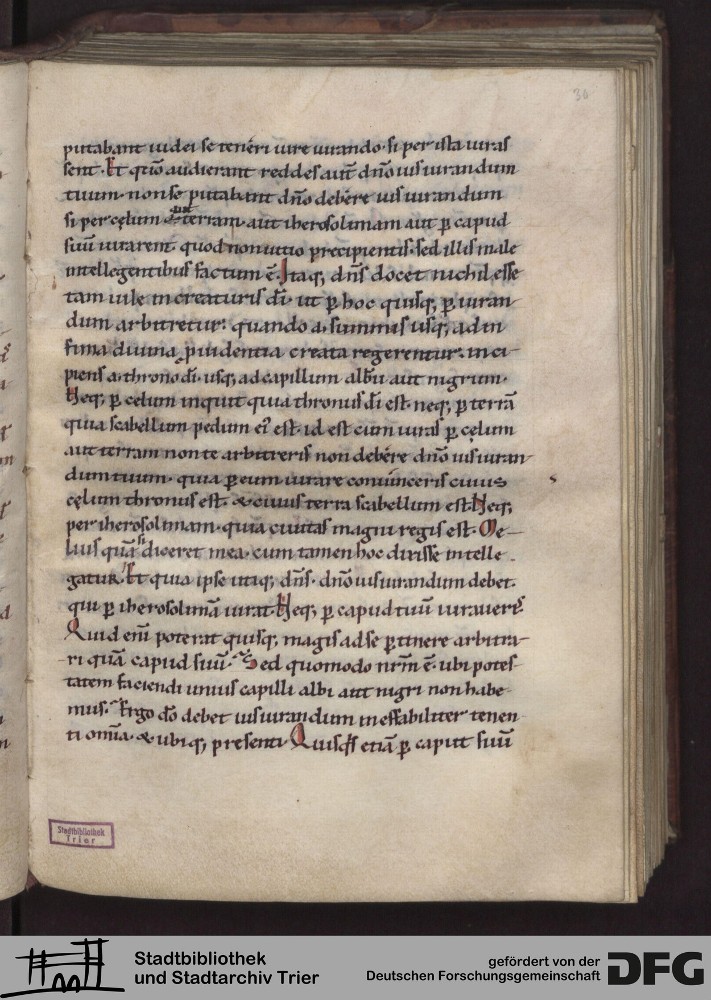 30
putabant iudei se teneri iure iurando· si per ista iuras
sent· Et quō audierant reddes aut̄ dn̄o ius iurandum
tuum· non se putabant dn̄o debere ius iurandum
si per cęlum & terram· aut iherosolimam aut ꝑ capud
suū iurarent· quod non uitio precipientis· sed illis male
intellegentibus factum ē· Itaq; dn̄s docet nichil esse
tam uile in creaturis dī· ut ꝑ hoc quisq; ꝑ iuran
dum arbitretur· quando a· summis usq; ad in
fima diuina ꝓuidentia creata regerentur· inci-
piens a· throno dī· usq; ad capillum albū aut nigrum·
Neq; ꝑ celum inquit quia thronus dī est· neq; ꝑ terrā
quia scabellum pedum ei' est· id est cum iuras ꝑ cęlum
aut terram non te arbitreris non debere dn̄o ius iuran-
dum tuum· quia ꝑ eum iurare conuinceris cuius
cęlum thronus est· & cuius terra scabellum est· Neq;
per iherosolimam· quia ciuitas magni regis est· Me-
lius quā si diceret mea· cum tamen hoc dixisse intelle-
gatur· Et quia ipse utiq; dn̄s· dn̄o ius iurandum debet·
qui ꝑ iherosolimā iurat· Neq; ꝑ capud tuū iuraueris
Quid enī poterat quisq; magis ad se ꝑtinere arbitra-
ri quā capud suū· Sed quomodo nr̄m ē· ubi potes-
tatem faciendi unius capilli albi aut nigri non habe-
mus· Ergo dō debet ius iurandum ineffabiliter tenen-
ti omīa· & ubiq; presenti· Quisq̄s etiā ꝑ caput suū
Stadtbibliothek
Trier
Stadtbibliothek
und Stadtarchiv Trier
gefördert von der
Deutschen Forschungsgemeinschaft
DFG